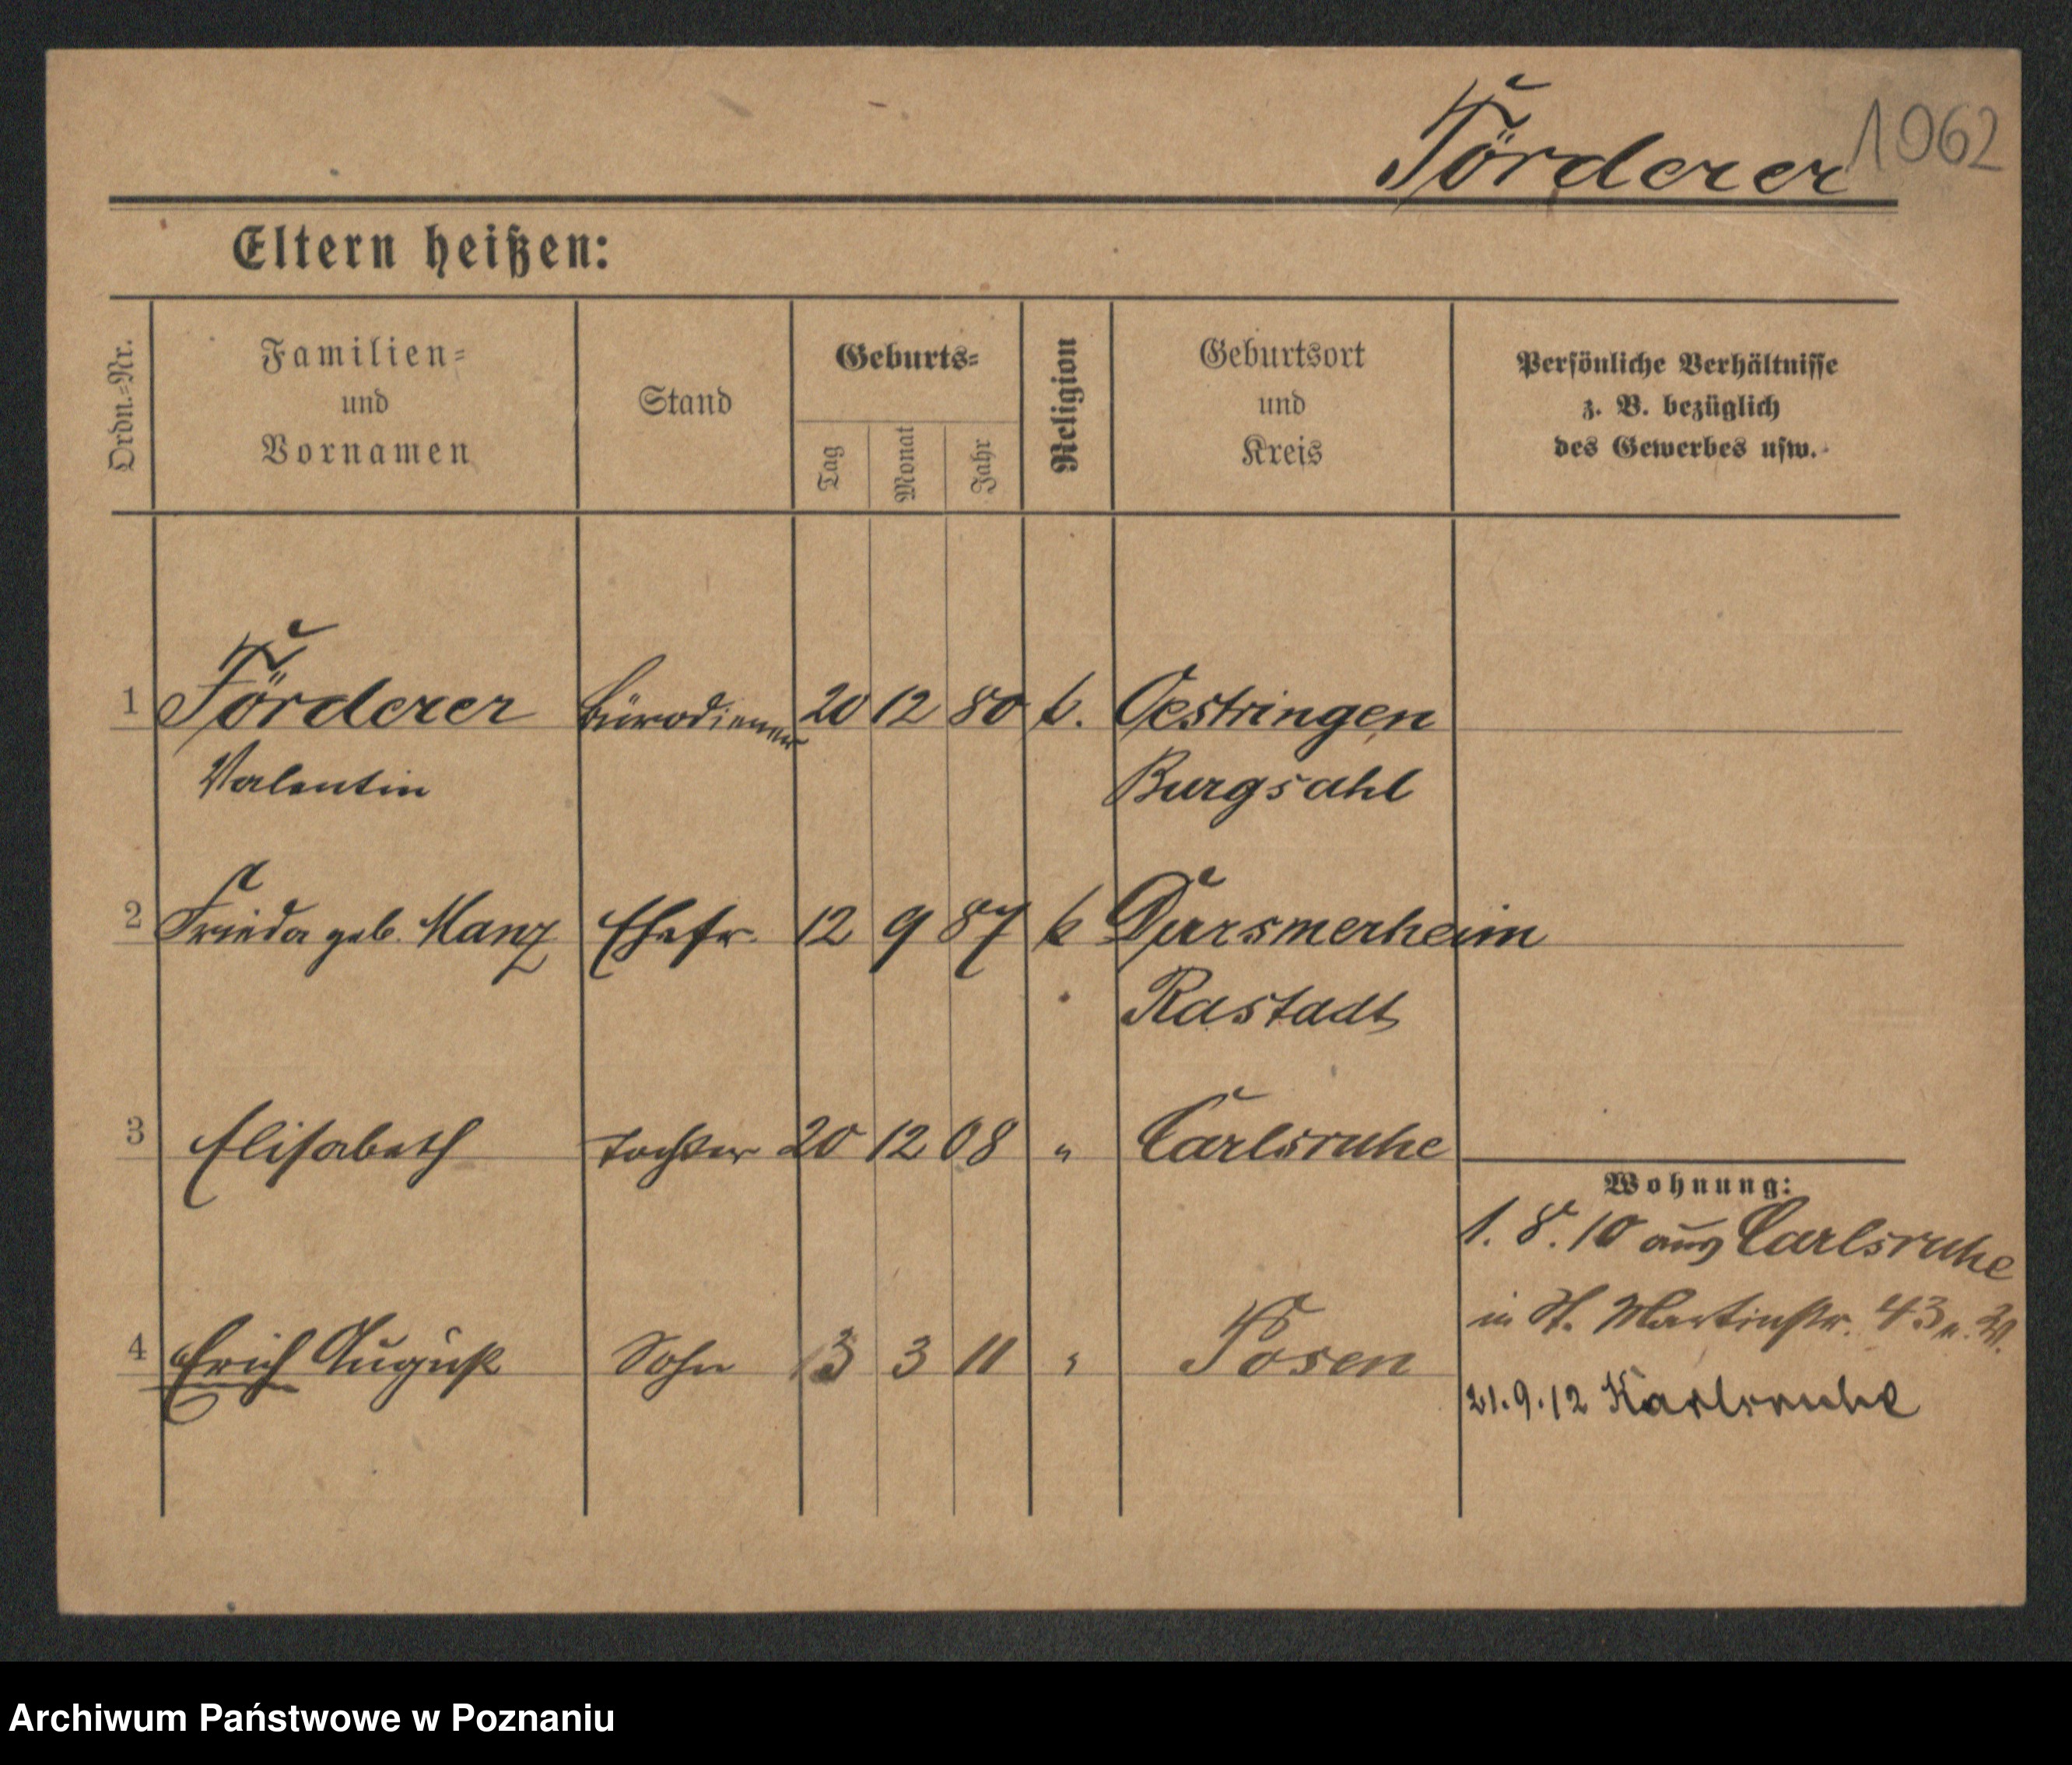 Förderer 1062
Eltern heißen:
Ordn.-Nr.
Familien-
und
Vornamen
Stand
Geburts-
Tag
Monat
Jahr
Religion
Geburtsort
und
Kreis
Persönliche Verhältnisse
z. B. bezüglich
des Gewerbes usw.
1 Förderer Bürodiener 20 12 80 k. Oestringen
Valentin Burgsahl
2 Frieda geb. Manz Ehefr. 12 9 87 k Dursmerheim
Rastadt
3 Elisabeth Tochter 20 12 08 " Carlsruhe
Wohnung:
1. 8. 10 aus Carlsruhe
in St. Martinstr. 43
4 Erich August Sohn 13 3 11 " Posen
21.9.12 Karlsruhe
Archiwum Państwowe w Poznaniu